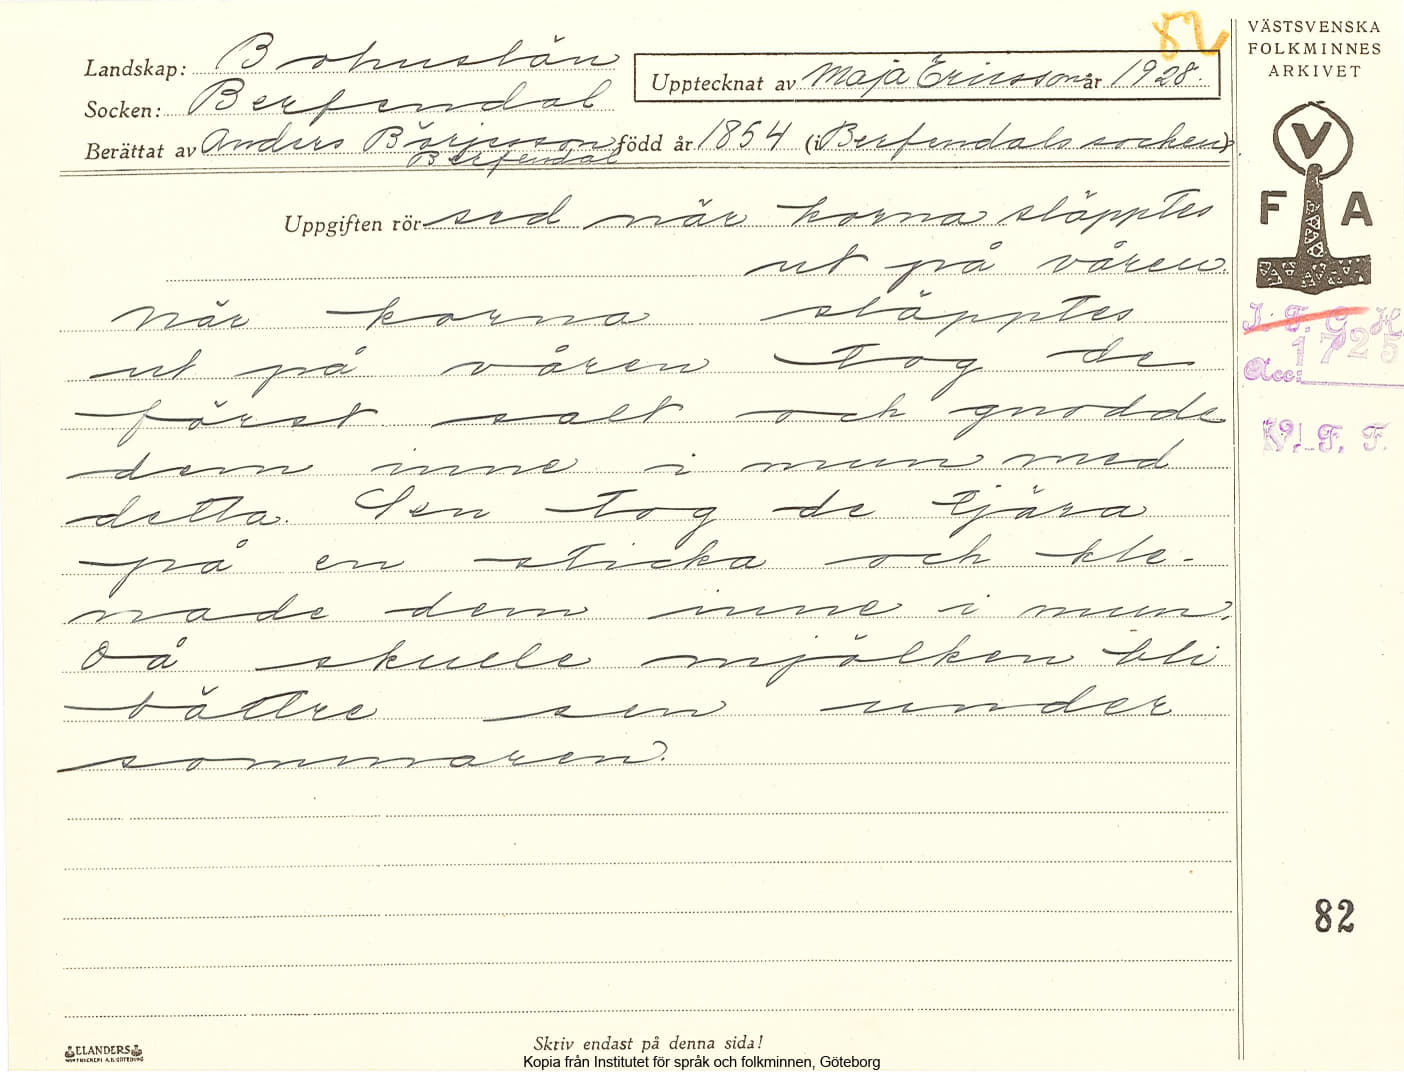 82
VÄSTSVENSKA
FOLKMINNES
ARKIVET
Landskap: Bohuslän
Upptecknat av Maja Ericsson år 1928.
Socken: Berfendal
Berättat av Anders Börjesson född år 1854 (i Berfendals socken)
Berfendal
V
F A
Uppgiften rör sed när korna släpptes
ut på våren.
När korna släpptes
ut på våren tog de
först salt och gnodde
dem inne i mun med
detta. Sen tog de tjära
på en sticka och kle-
nade dem inne i mun.
Då skulle mjölken bli
bättre sen under
sommaren.
I. F. G. H.
1725
Acc:
V. F. F.
82
Skriv endast på denna sida!
ELANDERS
Kopia från Institutet för språk och folkminnen, Göteborg